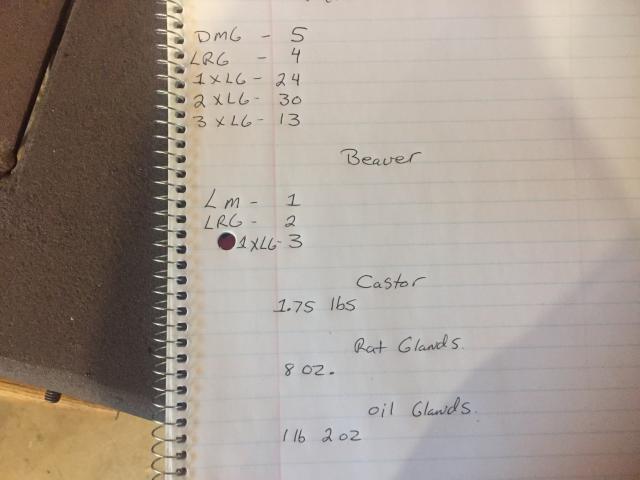 DMG - 5
LRG - 4
1XLG - 24
2XLG - 30
3XLG - 13
Beaver
LM - 1
LRG - 2
1XLG - 3
Castor
1.75 lbs
Rat Glands.
8 oz.
oil Glands.
1 lb 2 oz